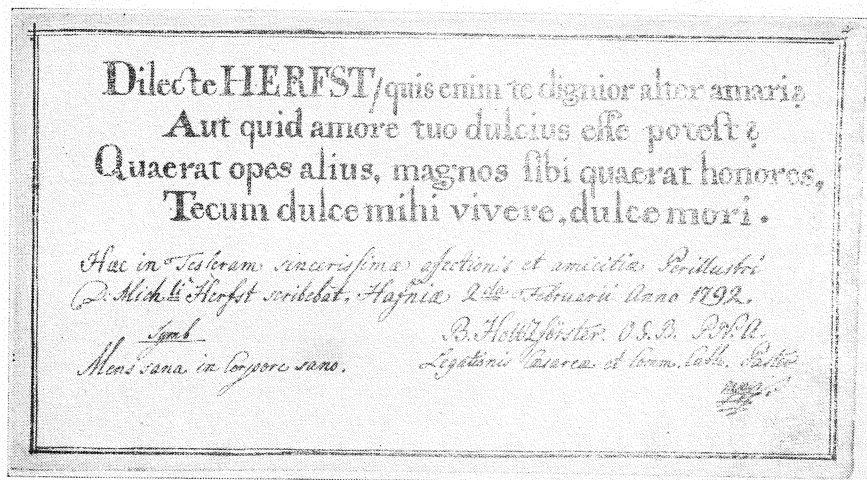 Dilecte HERFST/quis enim te dignior alter amari?
Aut quid amore tuo dulcius eſſe poteſt?
Quaerat opes alius, magnos ſibi quaerat honores,
Tecum dulce mihi vivere, dulce mori.
Hæc in Teſseram sinceriſsimæ affectionis et amicitiæ Perillustri
D: Mich li Herfst scribebat. Hafniæ 2da Februarii Anno 1792.
Symb
Mens sana in Corpore sano.
B. Holtzförster. O.S.B.
Legationis Cæsareæ et Comm. Cath. Pastor